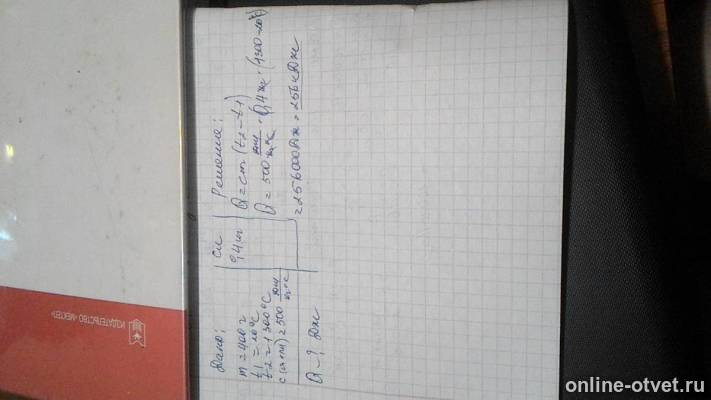 Дано:
m = 400 г
t1 = 20°C
t2 = 1300°C
c(стали) = 500 Дж/кг°C
Q - ? Дж
Си
0,4 кг
Решение:
Q = cm (t2 - t1)
Q = 500 Дж/кг°C · 0,4 кг · (1300-20°C)
= 256000 Дж = 256 кДж
ИЗДАТЕЛЬСТВО «МЕКТЕП»
online-otvet.ru